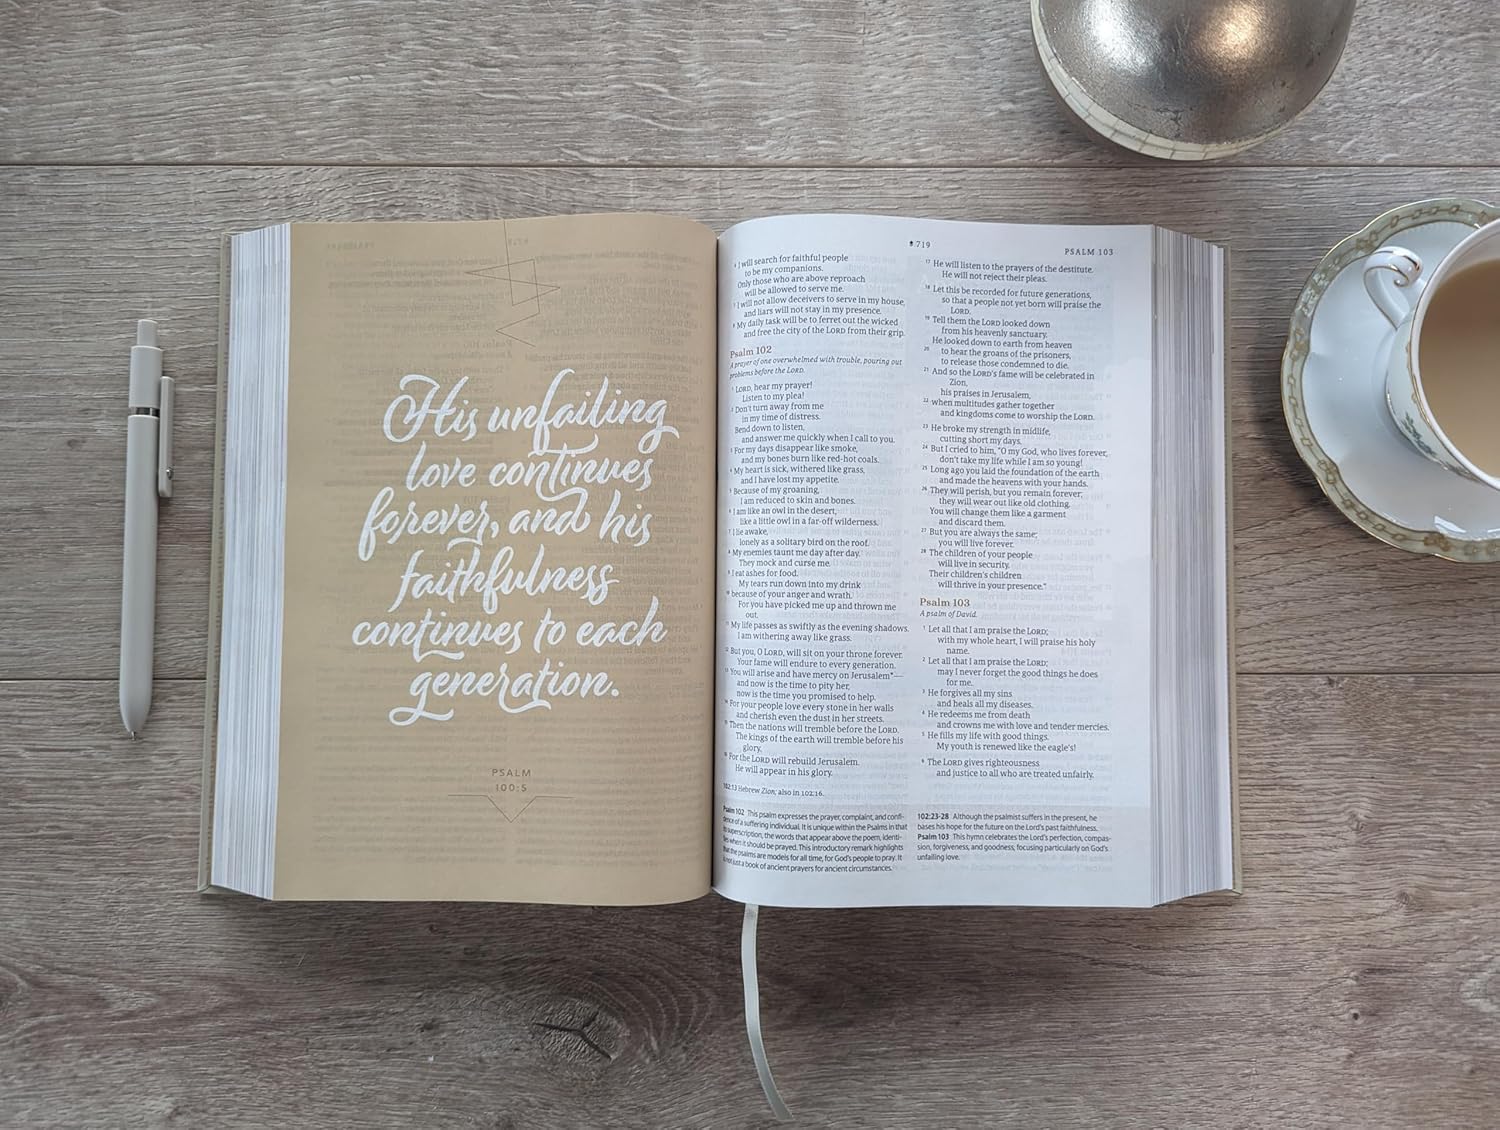 His unfailing
love continues
forever, and his
faithfulness
continues to each
generation.
PSALM
100:5
719
PSALM 103
I will search for faithful people
to be my companions.
Only those who are above reproach
will be allowed to serve me.
7 I will not allow deceivers to serve in my house,
and liars will not stay in my presence.
8 My daily task will be to ferret out the wicked
and free the city of the LORD from their grip.
Psalm 102
A prayer of one overwhelmed with trouble, pouring out
problems before the LORD.
1 LORD, hear my prayer!
Listen to my plea!
2 Don't turn away from me
in my time of distress.
Bend down to listen,
and answer me quickly when I call to you.
3 For my days disappear like smoke,
and my bones burn like red-hot coals.
4 My heart is sick, withered like grass,
and I have lost my appetite.
5 Because of my groaning,
I am reduced to skin and bones.
6 I am like an owl in the desert,
like a little owl in a far-off wilderness.
7 I lie awake,
lonely as a solitary bird on the roof.
8 My enemies taunt me day after day.
They mock and curse me.
9 I eat ashes for food.
My tears run down into my drink
10 because of your anger and wrath.
For you have picked me up and thrown me
out.
11 My life passes as swiftly as the evening shadows.
I am withering away like grass.
12 But you, O LORD, will sit on your throne forever.
Your fame will endure to every generation.
13 You will arise and have mercy on Jerusalem*—
and now is the time to pity her,
now is the time you promised to help.
14 For your people love every stone in her walls
and cherish even the dust in her streets.
15 Then the nations will tremble before the LORD.
The kings of the earth will tremble before his
glory.
16 For the LORD will rebuild Jerusalem.
He will appear in his glory.
102:13 Hebrew Zion; also in 102:16.
17 He will listen to the prayers of the destitute.
He will not reject their pleas.
18 Let this be recorded for future generations,
so that a people not yet born will praise the
LORD.
19 Tell them the LORD looked down
from his heavenly sanctuary.
He looked down to earth from heaven
20 to hear the groans of the prisoners,
to release those condemned to die.
21 And so the LORD's fame will be celebrated in
Zion,
his praises in Jerusalem,
22 when multitudes gather together
and kingdoms come to worship the LORD.
23 He broke my strength in midlife,
cutting short my days.
24 But I cried to him, "O my God, who lives forever,
don't take my life while I am so young!
25 Long ago you laid the foundation of the earth
and made the heavens with your hands.
26 They will perish, but you remain forever;
they will wear out like old clothing.
You will change them like a garment
and discard them.
27 But you are always the same;
you will live forever.
28 The children of your people
will live in security.
Their children's children
will thrive in your presence."
Psalm 103
A psalm of David.
1 Let all that I am praise the LORD;
with my whole heart, I will praise his holy
name.
2 Let all that I am praise the LORD;
may I never forget the good things he does
for me.
3 He forgives all my sins
and heals all my diseases.
4 He redeems me from death
and crowns me with love and tender mercies.
5 He fills my life with good things.
My youth is renewed like the eagle's!
6 The LORD gives righteousness
and justice to all who are treated unfairly.
Psalm 102 This psalm expresses the prayer, complaint, and confi-
dence of a suffering individual. It is unique within the Psalms in that
its superscription, the words that appear above the poem, identi-
fies when it should be prayed. This introductory remark highlights
that the psalms are models for all time, for God's people to pray. It
is not just a book of ancient prayers for ancient circumstances.
102:23-28 Although the psalmist suffers in the present, he
bases his hope for the future on the Lord's past faithfulness.
Psalm 103 This hymn celebrates the Lord's perfection, compas-
sion, forgiveness, and goodness, focusing particularly on God's
unfailing love.